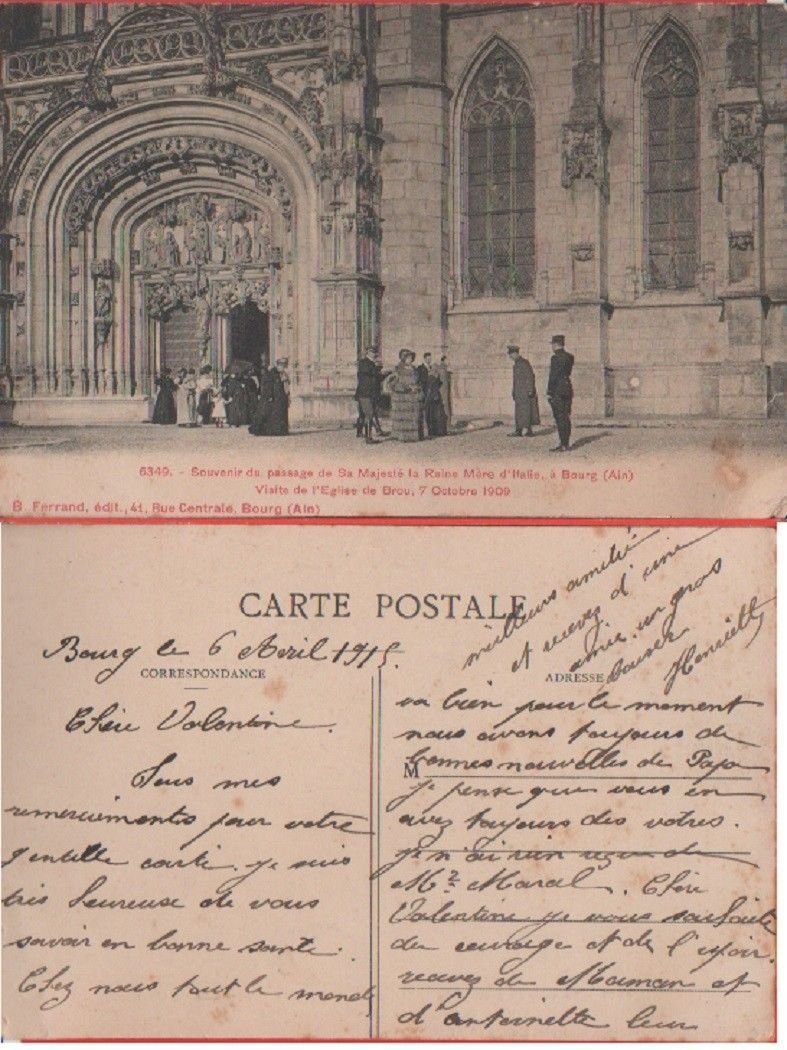 6349. - Souvenir du passage de Sa Majesté la Reine Mère d'Italie, à Bourg (Ain)
Visite de l'Eglise de Brou, 7 Octobre 1909
B. Ferrand, édit., 41, Rue Centrale, Bourg (Ain)
CARTE POSTALE
Bourg le 6 Avril 1915.
CORRESPONDANCE
ADRESSE
Chère Valentine.
Tous mes
remerciments pour votre
gentille carte. je suis
très heureuse de vous
savoir en bonne santé.
Chez nous tout le monde
va bien pour le moment
nous avons toujours de
M
bonnes nouvelles de Papa
je pense que vous en
avez toujours des votres.
je n'ai rien reçu de
Mr Marcel. Chère
Valentine je vous souhaite
du courage et de l'espoir.
recevez de Maman et
d'antoinette leur
meilleurs amitié
et recevez d'une
amie un gros
baiser
Henriette